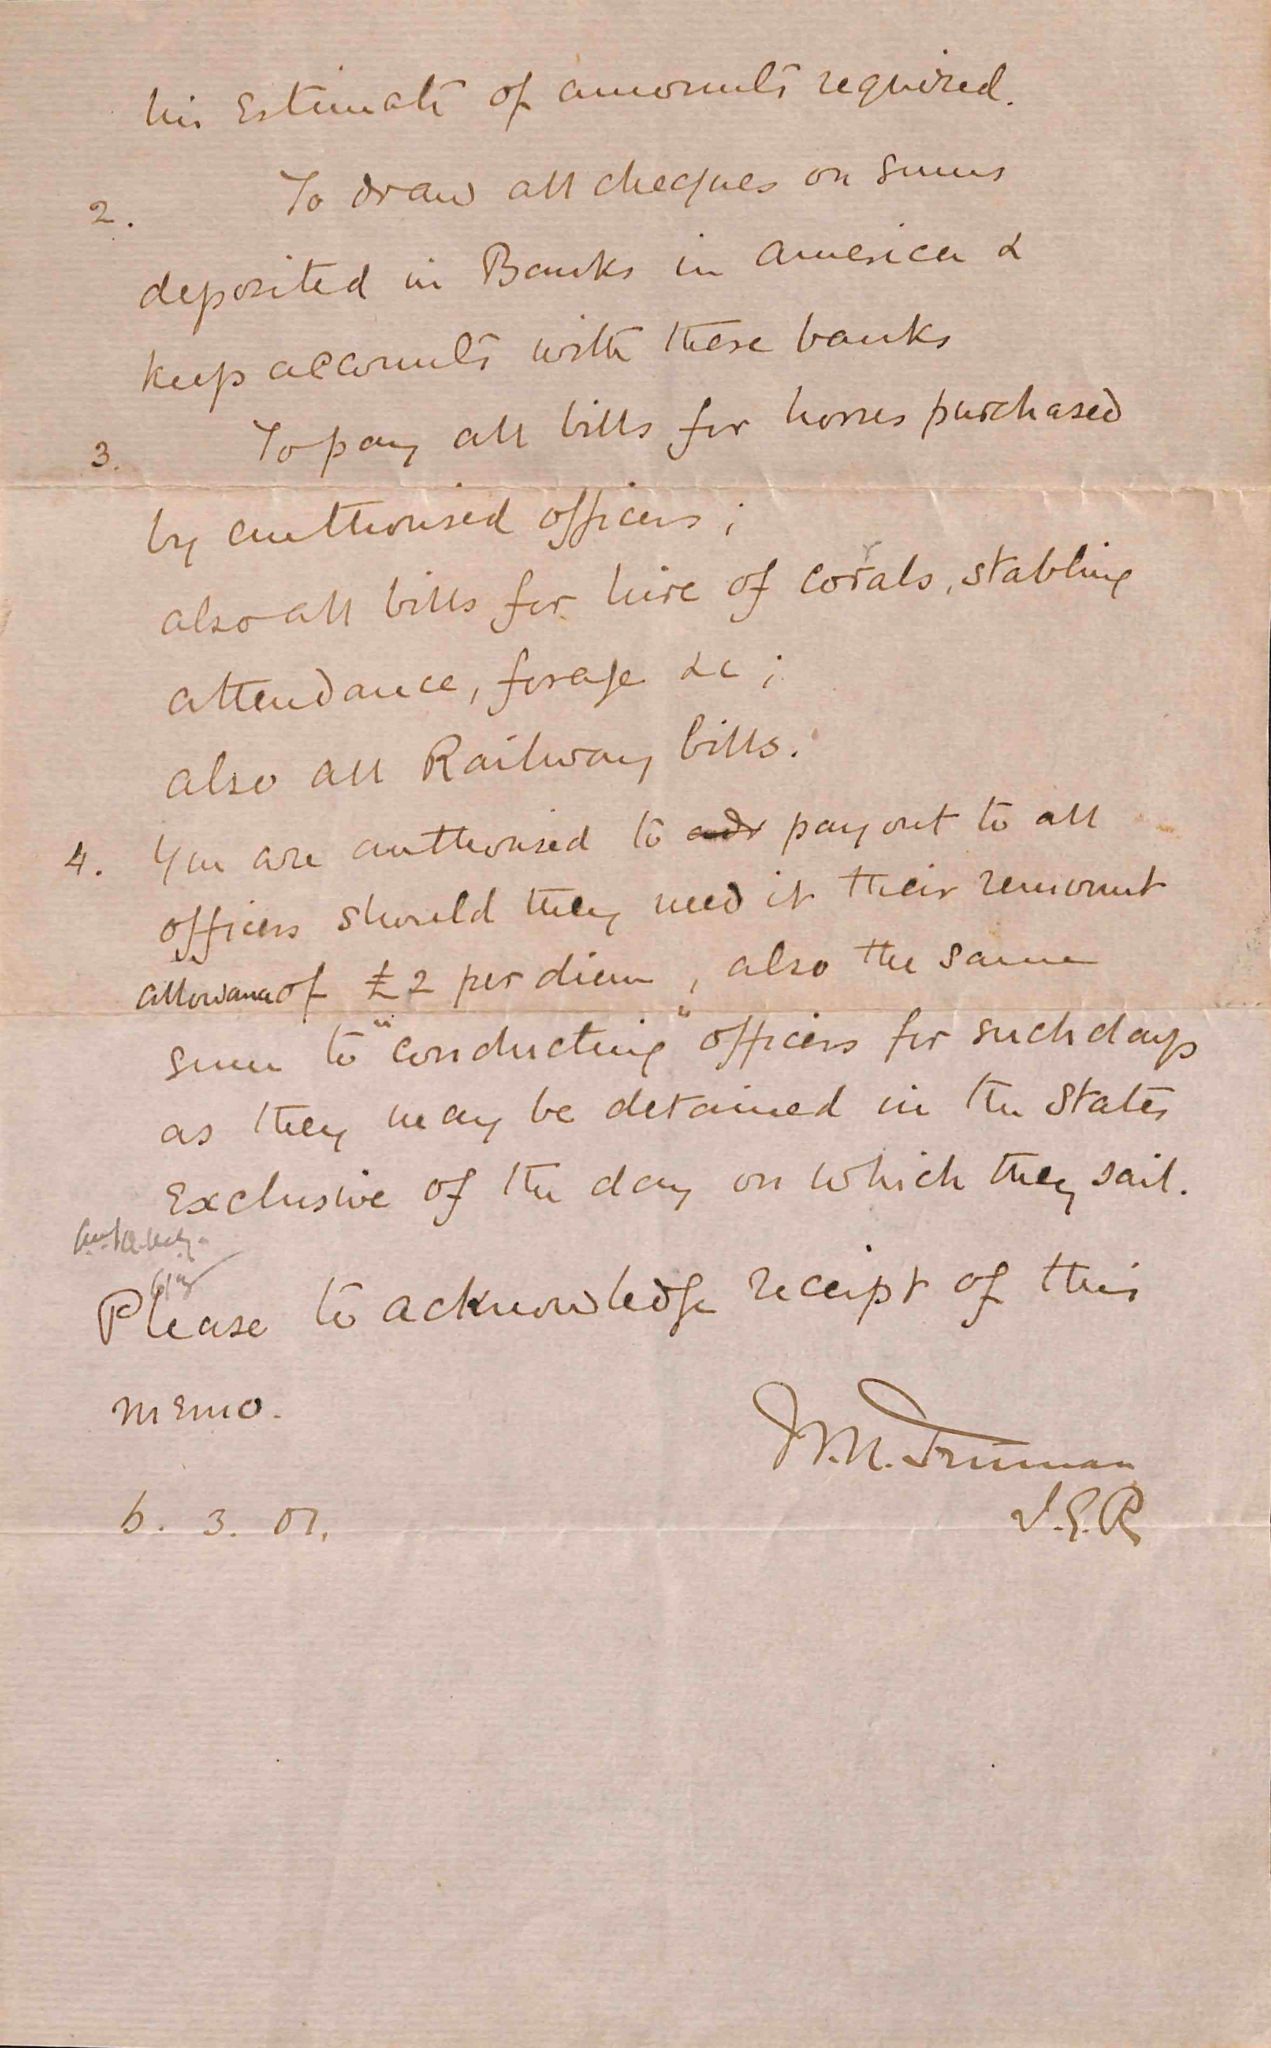 his Estimate of amounts required.
2. To draw all cheques on sums
deposited in Banks in America &
keep accounts with these banks
3. To pay all bills for horses purchased
by authorised officers;
also all bills for hire of corrals, stabling
attendance, forage &c;
also all Railway bills.
4. You are authorised to pay out to all
officers should they need it their remount
allowance of £2 per diem, also the same
sum to "conducting" officers for such days
as they may be detained in the States
Exclusive of the day on which they sail.
Please to acknowledge receipt of this
memo.
W.R. Truman
I.G.R
6. 3. 01.